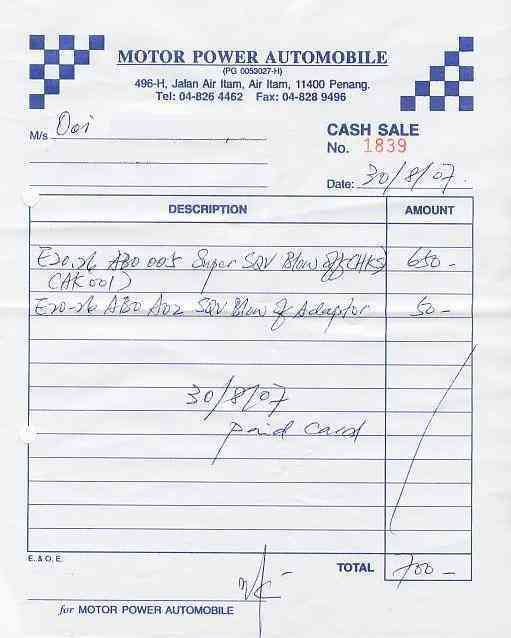 MOTOR POWER AUTOMOBILE
(PG 0053027-H)
496-H, Jalan Air Itam, Air Itam, 11400 Penang.
Tel: 04-826 4462 Fax: 04-828 9496
M/s Ooi
CASH SALE
No. 1839
Date: 30/8/07
DESCRIPTION AMOUNT
E20-26 AB0 005 Super SQV Blow Off (HKS) 650-
(AK001)
E20-26 AB0 A02 SQV Blow Off Adaptor 50-
30/8/07
Paid Card
E. & O. E.
TOTAL 700-
for MOTOR POWER AUTOMOBILE